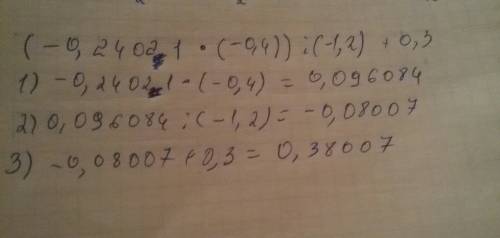 (-0,24021 · (-0,4)) : (-1,2) + 0,3
1) -0,24021 · (-0,4) = 0,096084
2) 0,096084 : (-1,2) = -0,08007
3) -0,08007 + 0,3 = 0,38007